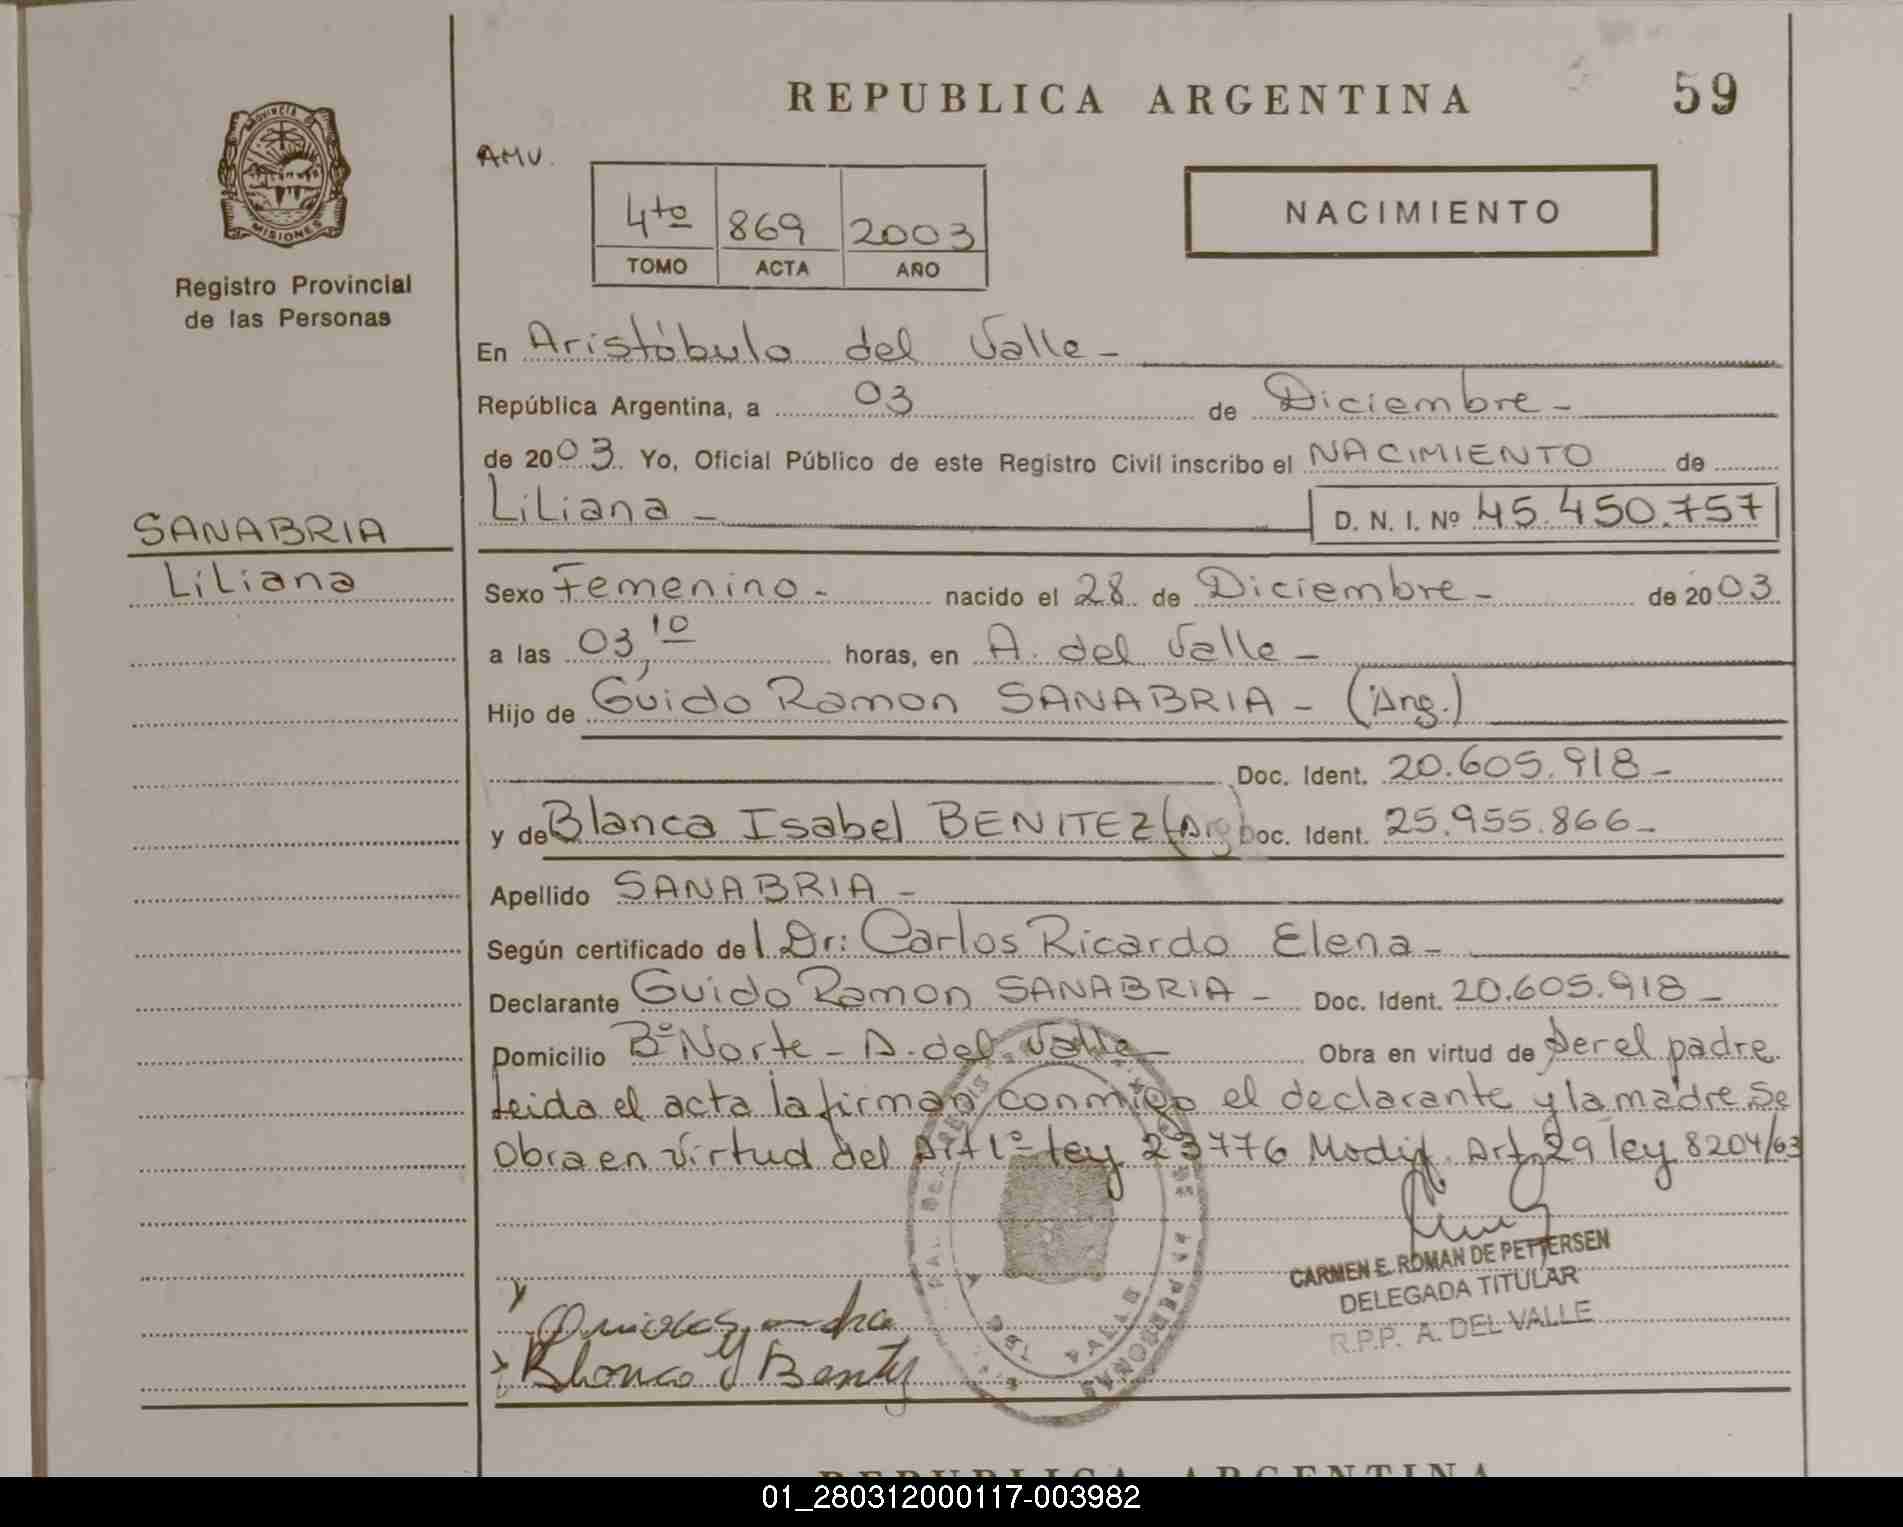 REPUBLICA ARGENTINA
59
PROVINCIA DE
MISIONES
Registro Provincial
de las Personas
AMV.
4to 869 2003
TOMO ACTA AÑO
NACIMIENTO
En Aristóbulo del Valle -
República Argentina, a 03 de Diciembre -
de 2003. Yo, Oficial Público de este Registro Civil inscribo el NACIMIENTO de
Liliana - D. N. I. Nº 45.450.757
SANABRIA
Liliana
Sexo Femenino - nacido el 28 de Diciembre - de 2003
a las 03,10 horas, en A. del Valle -
Hijo de Guido Ramon SANABRIA - (Arg.)
Doc. Ident. 20.605.918 -
y de Blanca Isabel BENITEZ (Arg) Doc. Ident. 25.955.866 -
Apellido SANABRIA -
Según certificado del Dr: Carlos Ricardo Elena -
Declarante Guido Ramon SANABRIA - Doc. Ident. 20.605.918 -
Domicilio Bº Norte - A. del Valle - Obra en virtud de ser el padre
Leida el acta la firman conmigo el declarante y la madre se
Obra en virtud del Art 1º ley 23776 Modif. Art 29 ley 8204/63
CARMEN E. ROMAN DE PETTERSEN
DELEGADA TITULAR
R.P.P. A. DEL VALLE
DE LAS PERSONAS
DEL VALLE
Blanca y Benitez
REPUBLICA ARGENTINA
01_280312000117-003982